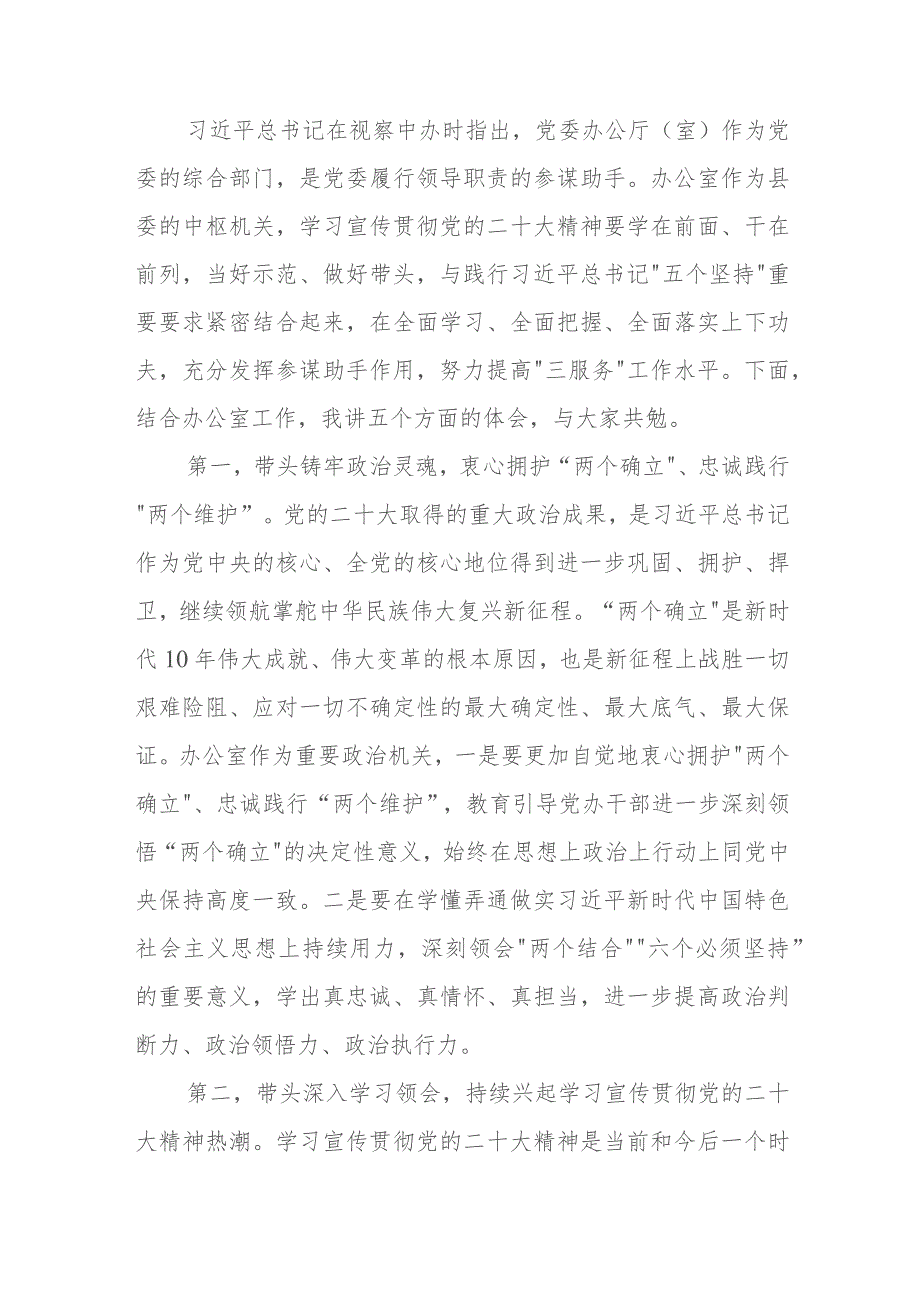 习近平总书记在视察中办时指出，党委办公厅（室）作为党
委的综合部门，是党委履行领导职责的参谋助手。办公室作为县
委的中枢机关，学习宣传贯彻党的二十大精神要学在前面、干在
前列，当好示范、做好带头，与践行习近平总书记"五个坚持"重
要要求紧密结合起来，在全面学习、全面把握、全面落实上下功
夫，充分发挥参谋助手作用，努力提高"三服务"工作水平。下面，
结合办公室工作，我讲五个方面的体会，与大家共勉。
第一，带头铸牢政治灵魂，衷心拥护“两个确立"、忠诚践行
"两个维护”。党的二十大取得的重大政治成果，是习近平总书记
作为党中央的核心、全党的核心地位得到进一步巩固、拥护、捍
卫，继续领航掌舵中华民族伟大复兴新征程。“两个确立"是新时
代 10 年伟大成就、伟大变革的根本原因，也是新征程上战胜一切
艰难险阻、应对一切不确定性的最大确定性、最大底气、最大保
证。办公室作为重要政治机关，一是要更加自觉地衷心拥护"两个
确立"、忠诚践行“两个维护”，教育引导党办干部进一步深刻领
悟“两个确立"的决定性意义，始终在思想上政治上行动上同党中
央保持高度一致。二是要在学懂弄通做实习近平新时代中国特色
社会主义思想上持续用力，深刻领会"两个结合""六个必须坚持”
的重要意义，学出真忠诚、真情怀、真担当，进一步提高政治判
断力、政治领悟力、政治执行力。
第二，带头深入学习领会，持续兴起学习宣传贯彻党的二十
大精神热潮。学习宣传贯彻党的二十大精神是当前和今后一个时